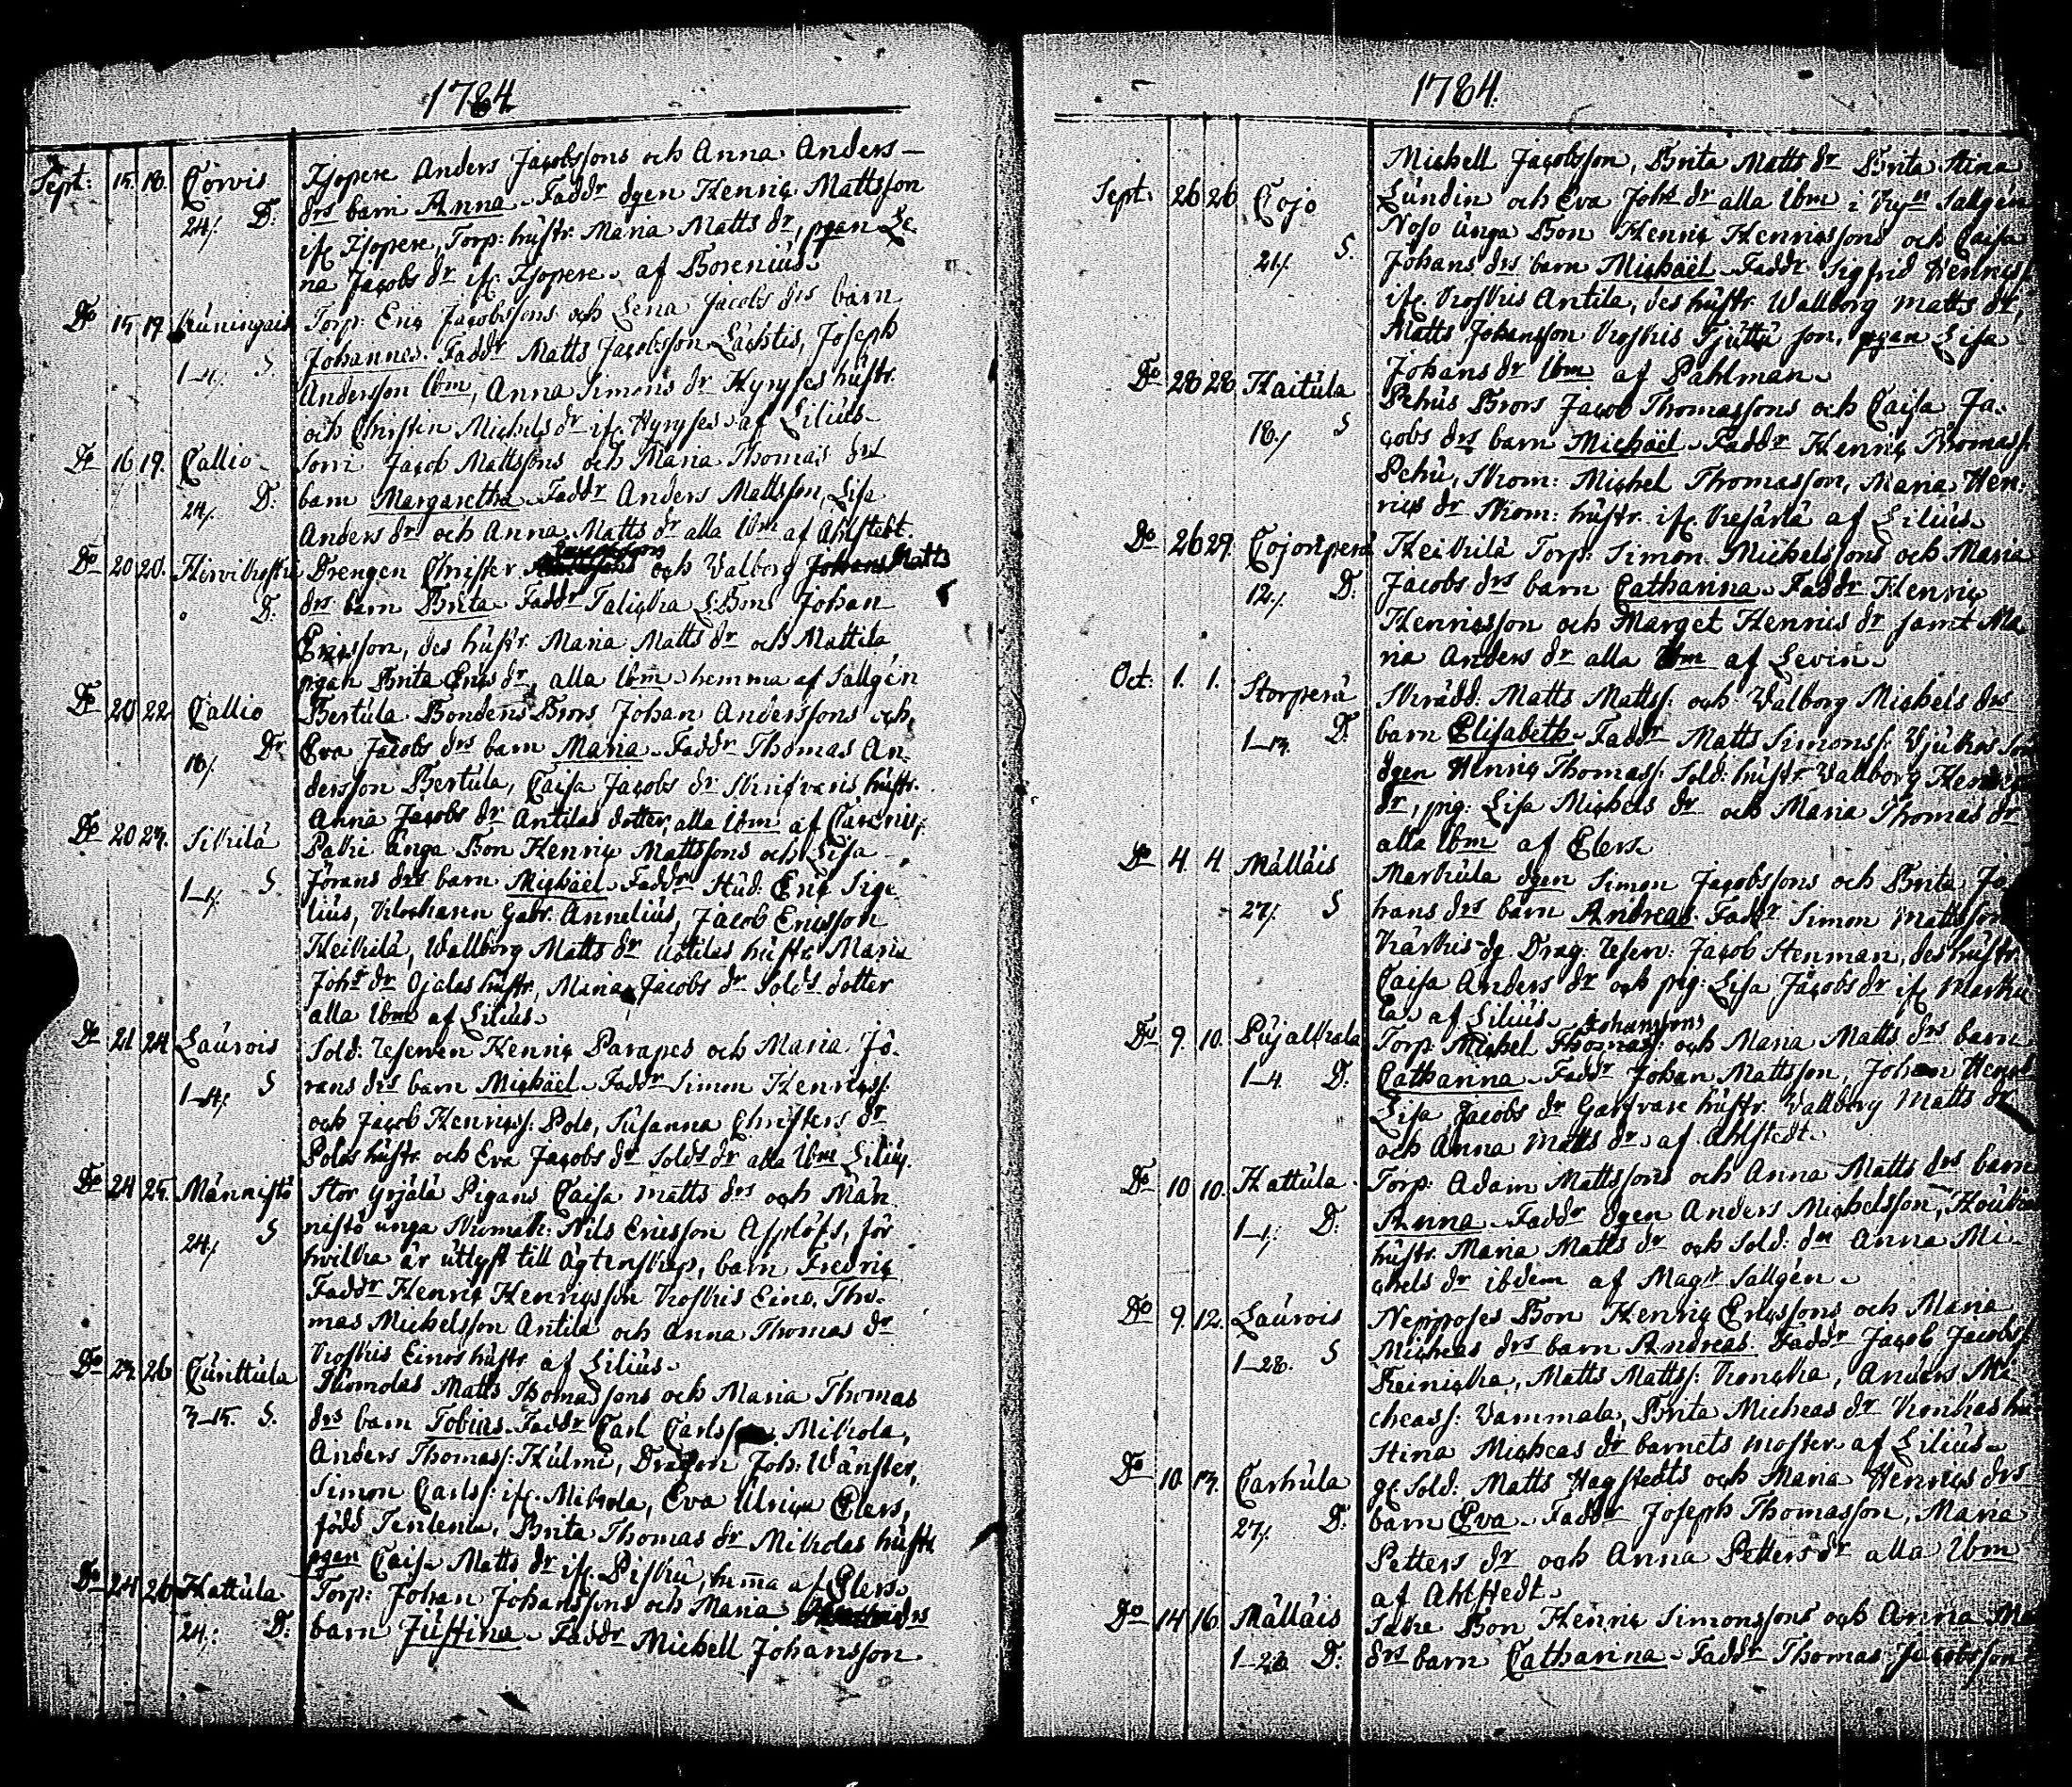 1784
Sept: 15. 18. Corvis Isopere Anders Jacobssons och Anna Anders-
24/. D. drs barn Anna. Faddr dgen Henric Mattsson
ifr. Isopere, Torp: hustr. Maria Matts dr, pgan Le-
na Jacobs dr ifr. Isopere. af Borenius.
Do 15 19. Torp: Eric Jacobssons och Lena Jacobs drs barn
1-4/. S. Johannes. Faddr Matts Jacobsson Lächtis, Joseph
Andersson Ibm, Anna Simons dr Hyryses hustr.
och Christin Michels dr ifr. Hyryses. af Lilius.
Do 16 19. Callio Jacob Mattssons och Maria Thomas drs
24/. D. barn Margaretha. Faddr Anders Mattsson, Lisa
Anders dr och Anna Matts dr alla Ibm af Ahlstedt.
Do 20 20. Drengen Christer och Valborg Matts
D. drs barn Brita. Faddr Johan
Ericsson, des hustr. Maria Matts dr och Mattila
pgan Brita Erics dr, alla Ibm. hemma af Sallgén
Do 20 22 Callio Bertula Bondens Brors Johan Anderssons och
18/. Dr Eva Jacobs drs barn Maria. Faddr Thomas An-
dersson Bertula, Caisa Jacobs dr hustr.
Anna Jacobs dr Antilas dotter, alla Ibm af
Do 20 23. Sikilä unga Bon Henric Mattssons och Lisa
1-1/. S Jörans drs barn Michaël. Faddr Stud. Eric Sige-
lius, Klockaren Gabr. Annelius, Jacob Ericsson
Heikilä, Wallborg Matts dr Uotilas hustr. Maria
Johs dr Ojalas hustr, Maria Jacobs dr Solds dotter
alla Ibm af Lilius.
Do 21 24 Laurois Sold: Reserven Henric Parapes och Maria Jö-
1-4/. S rans drs barn Michaël. Faddr Simon Henricss:
och Jacob Henricss: Polo, Susanna Christers dr
Polos hustr. och Eva Jacobs dr Solds dr alla Ibm Lilius.
Do 24 25. Männistö Stor Yrjälä Pigans Caisa Matts drs och Män-
24/. S nistö unga Nils Ericsson Asplöfs, för
hvilka är utlyst till ägtenskap, barn Fredric
Faddr Henric Henricsson Koskis Eino. Tho-
mas Michelsson Antila och Anna Thomas dr
Koskis Einos hustr. af Lilius.
Do 23. 26 Curittula Thomolas Matts Thomassons och Maria Thomas
3-15. S. drs barn Tobias. Faddr Carl Mikola,
Anders Thomass: Hulmi, Dragon Joh: Wänster,
Simon Carlss: ifr. Mikola, Eva Ulrica Elers,
född Brita Thomas dr Mikolas hustr
pgan Caisa Matts dr ifr. hemma af Elers.
Do 24 26 Hattula Torp: Johan Johanssons och Maria drs
24/. D. barn Justina. Faddr Michell Johansson
1784.
Michell Jacobsson, Brita Matts dr Brita Stina
Sept: 26 26 Cojo Lundin och Eva Johs dr alla Ibm i Sallgén
21/. S. unga Bon Henric Henricssons och Caisa
Johans drs barn Michaël. Faddr Sigfrid Henricss
ifr. Koskis Antila, des hustr. Wallborg Matts dr,
Matts Johansson Koskis son, pgan Lisa
Johans dr Ibm af Pahlman.
Do 28 28 Haitula Pehus Brors Jacob Thomassons och Caisa Ja-
18./ S cobs drs barn Michaël. Faddr Henric Thomass:
Pehu, Skom: Michel Thomasson, Maria Hen-
rics dr Skom: hustr. ifr. af Lilius.
Do 26 29. Cojonperä Heikilä Torp: Simon Michelssons och Maria
12./ D. Jacobs drs barn Catharina. Faddr Henric
Henricsson och Marget Henrics dr samt Ma-
ria Anders dr alla Ibm af Levin.
Oct: 1. 1. Storperä Skrädd: Matts Mattss: och Valborg Michels drs
1-13. D. barn Elisabeth. Faddr Matts Simonss:
dgen Henric Thomass: Sold: hustr. Wallborg
dr, pig: Lisa Michels dr och Maria Thomas dr
alla Ibm af Elers.
Do 4 4. Mälläis Markula dgen Simon Jacobssons och Brita Jo-
27/. S hans drs barn Andreas. Faddr Simon Mattsson
Drag: reserv: Jacob Stenman, des hustr.
Caisa Anders dr och pig: Lisa Jacobs dr ifr Marku-
la. af Lilius. Johanssons
Do 9. 10. Pujalkala Torp: Michel och Maria Matts drs barn
1-4. D. Catharina. Faddr Johan Mattsson, Johan
Lisa Jacobs dr Garfvare hustr. Wallborg Matts dr
och Anna Matts dr. af Ahlstedt.
Do 10 10. Hattula Torp: Adam Mattssons och Anna Matts drs barn
1-1/. D. Anna. Faddr dgen Anders Michelsson,
hustr. Maria Matts dr och Sold: dr Anna Mi-
chels dr ibdem af Magr Sallgén.
Do 9. 12. Laurois Nepposes Bon Henric Ericssons och Maria
1-28. S Micheas drs barn Andreas. Faddr Jacob Jacobss:
Matts Mattss: Anders Mi-
cheass: Vammala, Brita Micheas dr
Stina Micheas dr barnets moster. af Lilius.
Do 10. 13. Carhula gl Sold: Matts Hagstedts och Maria Henrics drs
27/. D. barn Eva. Faddr Joseph Thomasson, Maria
Petters dr och Anna Petters dr alla Ibm
af Ahlstedt.
Do 14 16. Mälläis Bon Henric Simonssons och Anna
1-28 D. drs barn Catharina. Faddr Thomas Jacobsson